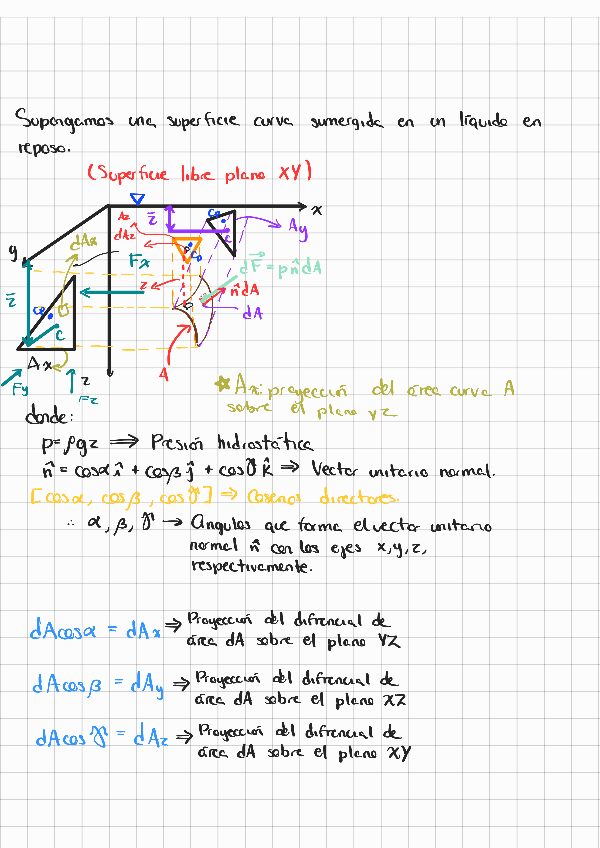 Supongamos una superficie curva sumergida en un líquido en
reposo.
(Superficie libre plano XY)
x
Az
z̄
CP
Ay
y
dAx
dAz
C
CP
Fx
dF⃗ = pn̂dA
z
n̂dA
z̄
CP
dA
C
Ax
A
Fy
z
Fz
★Ax: proyección del área curva A
sobre el plano yz
donde:
p=ρgz ⟹ Presión hidrostática
n̂ = cosα î + cosβ ĵ + cosγ k̂ ⇒ Vector unitario normal.
[cosα, cosβ, cosγ] ⇒ Cosenos directores.
∴ α, β, γ → Angulos que forma el vector unitario
normal n̂ con los ejes x,y,z,
respectivamente.
dAcosα = dAx ⇒ Proyección del difrencial de
área dA sobre el plano YZ
dAcosβ = dAy ⇒ Proyección del difrencial de
área dA sobre el plano XZ
dAcosγ = dAz ⇒ Proyección del difrencial de
área dA sobre el plano XY